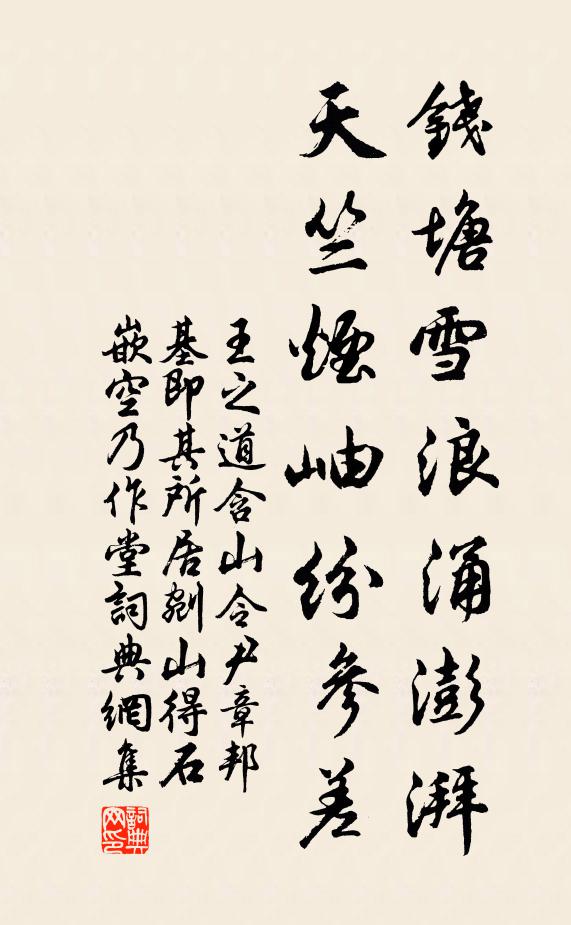 錢塘雪浪涌澎湃
天竺煙岫紛參差
王之道含山令尹章邦
基即其所居剜山得石
嵌空乃作堂詞典網集
詞典
网印